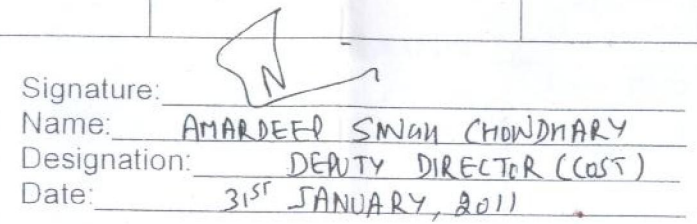 Signature:
Name: AMARDEEP SINGH CHOWDHARY
Designation: DEPUTY DIRECTOR (COST)
Date: 31ST JANUARY, 2011